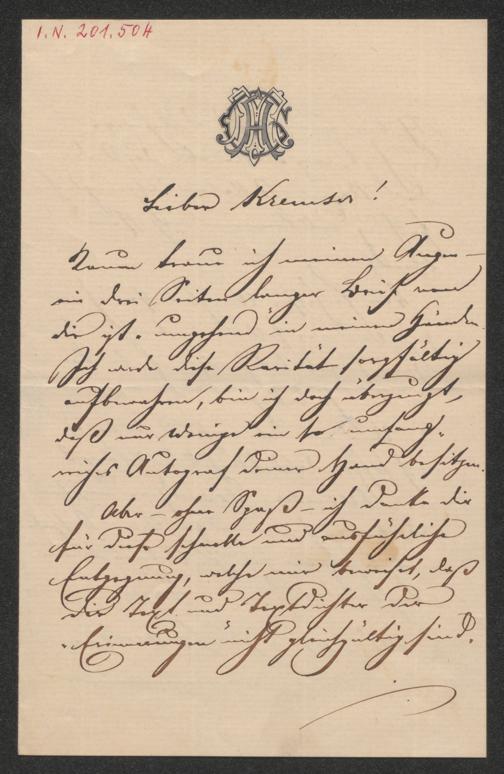 I.N. 201.504
Lieber Kremser!
Kaum traue ich meinen Augen –
ein drei Seiten langer Brief von
dir ist „umgehend“ in meinen Händen.
Ich werde diese Rarität sorgfältig
aufbewahren, bin ich doch überzeugt,
daß nur Wenige ein so umfang-
reiches Autograf deiner Hand besitzen.
Aber – ohne Spaß – ich danke dir
für diese schnelle und ausführliche
Entgegnung, welche mir beweiset, daß
dir Text und Textdichter der
„Erinnerungen“ nicht gleichgültig sind.